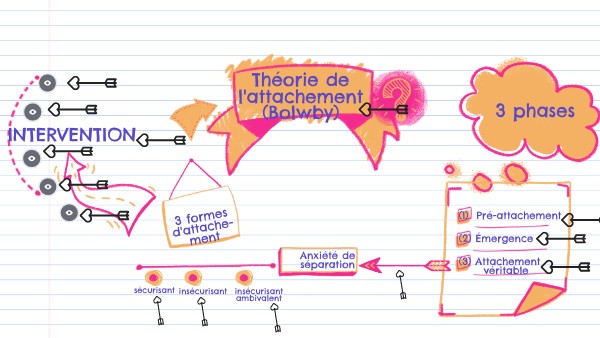 Théorie de
l'attachement
(Bolwby)
?
3 phases
INTERVENTION
3 formes
d'attache-
ment
(1) Pré-attachement
(2) Émergence
(3) Attachement
véritable
Anxiété de
séparation
sécurisant
insécurisant
insécurisant
ambivalent